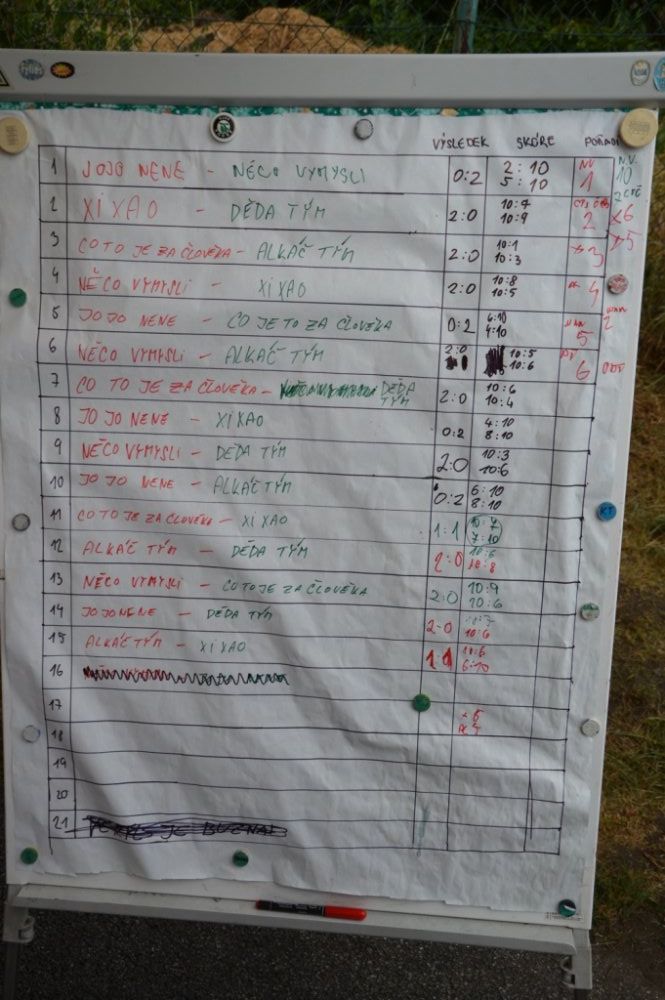 VÝSLEDEK SKÓRE POŘADÍ
1 JOJO NENE - NĚCO VYMYSLI 0:2 2:10 5:10 NV 1 N.V. 10
2 XIXAO - DĚDA TÝM 2:0 10:7 10:9 2 x6
3 CO TO JE ZA ČLOVĚKA - ALKÁČ TÝM 2:0 10:1 10:3 3
4 NĚCO VYMYSLI - XIXAO 2:0 10:8 10:5 4
5 JOJO NENE - CO JE TO ZA ČLOVĚKA 0:2 6:10 4:10 5 2
6 NĚCO VYMYSLI - ALKÁČ TÝM 2:0 10:5 10:6 6
7 CO TO JE ZA ČLOVĚKA - DĚDA TÝM 2:0 10:6 10:4
8 JO JO NENE - XIXAO 0:2 4:10 8:10
9 NĚCO VYMYSLI - DĚDA TÝM 2:0 10:3 10:6
10 JO JO NENE - ALKÁČ TÝM 0:2 6:10 8:10
11 CO TO JE ZA ČLOVĚKA - XIXAO 1:1 10:7 7:10
12 ALKÁČ TÝM - DĚDA TÝM 2:0 10:6 10:8
13 NĚCO VYMYSLI - CO TO JE ZA ČLOVĚKA 2:0 10:9 10:6
14 JOJO NENE - DĚDA TÝM 2-0 10:6
15 ALKÁČ TÝM - XIXAO 1:1 10:6 6:10
16
17
18
19
20
21